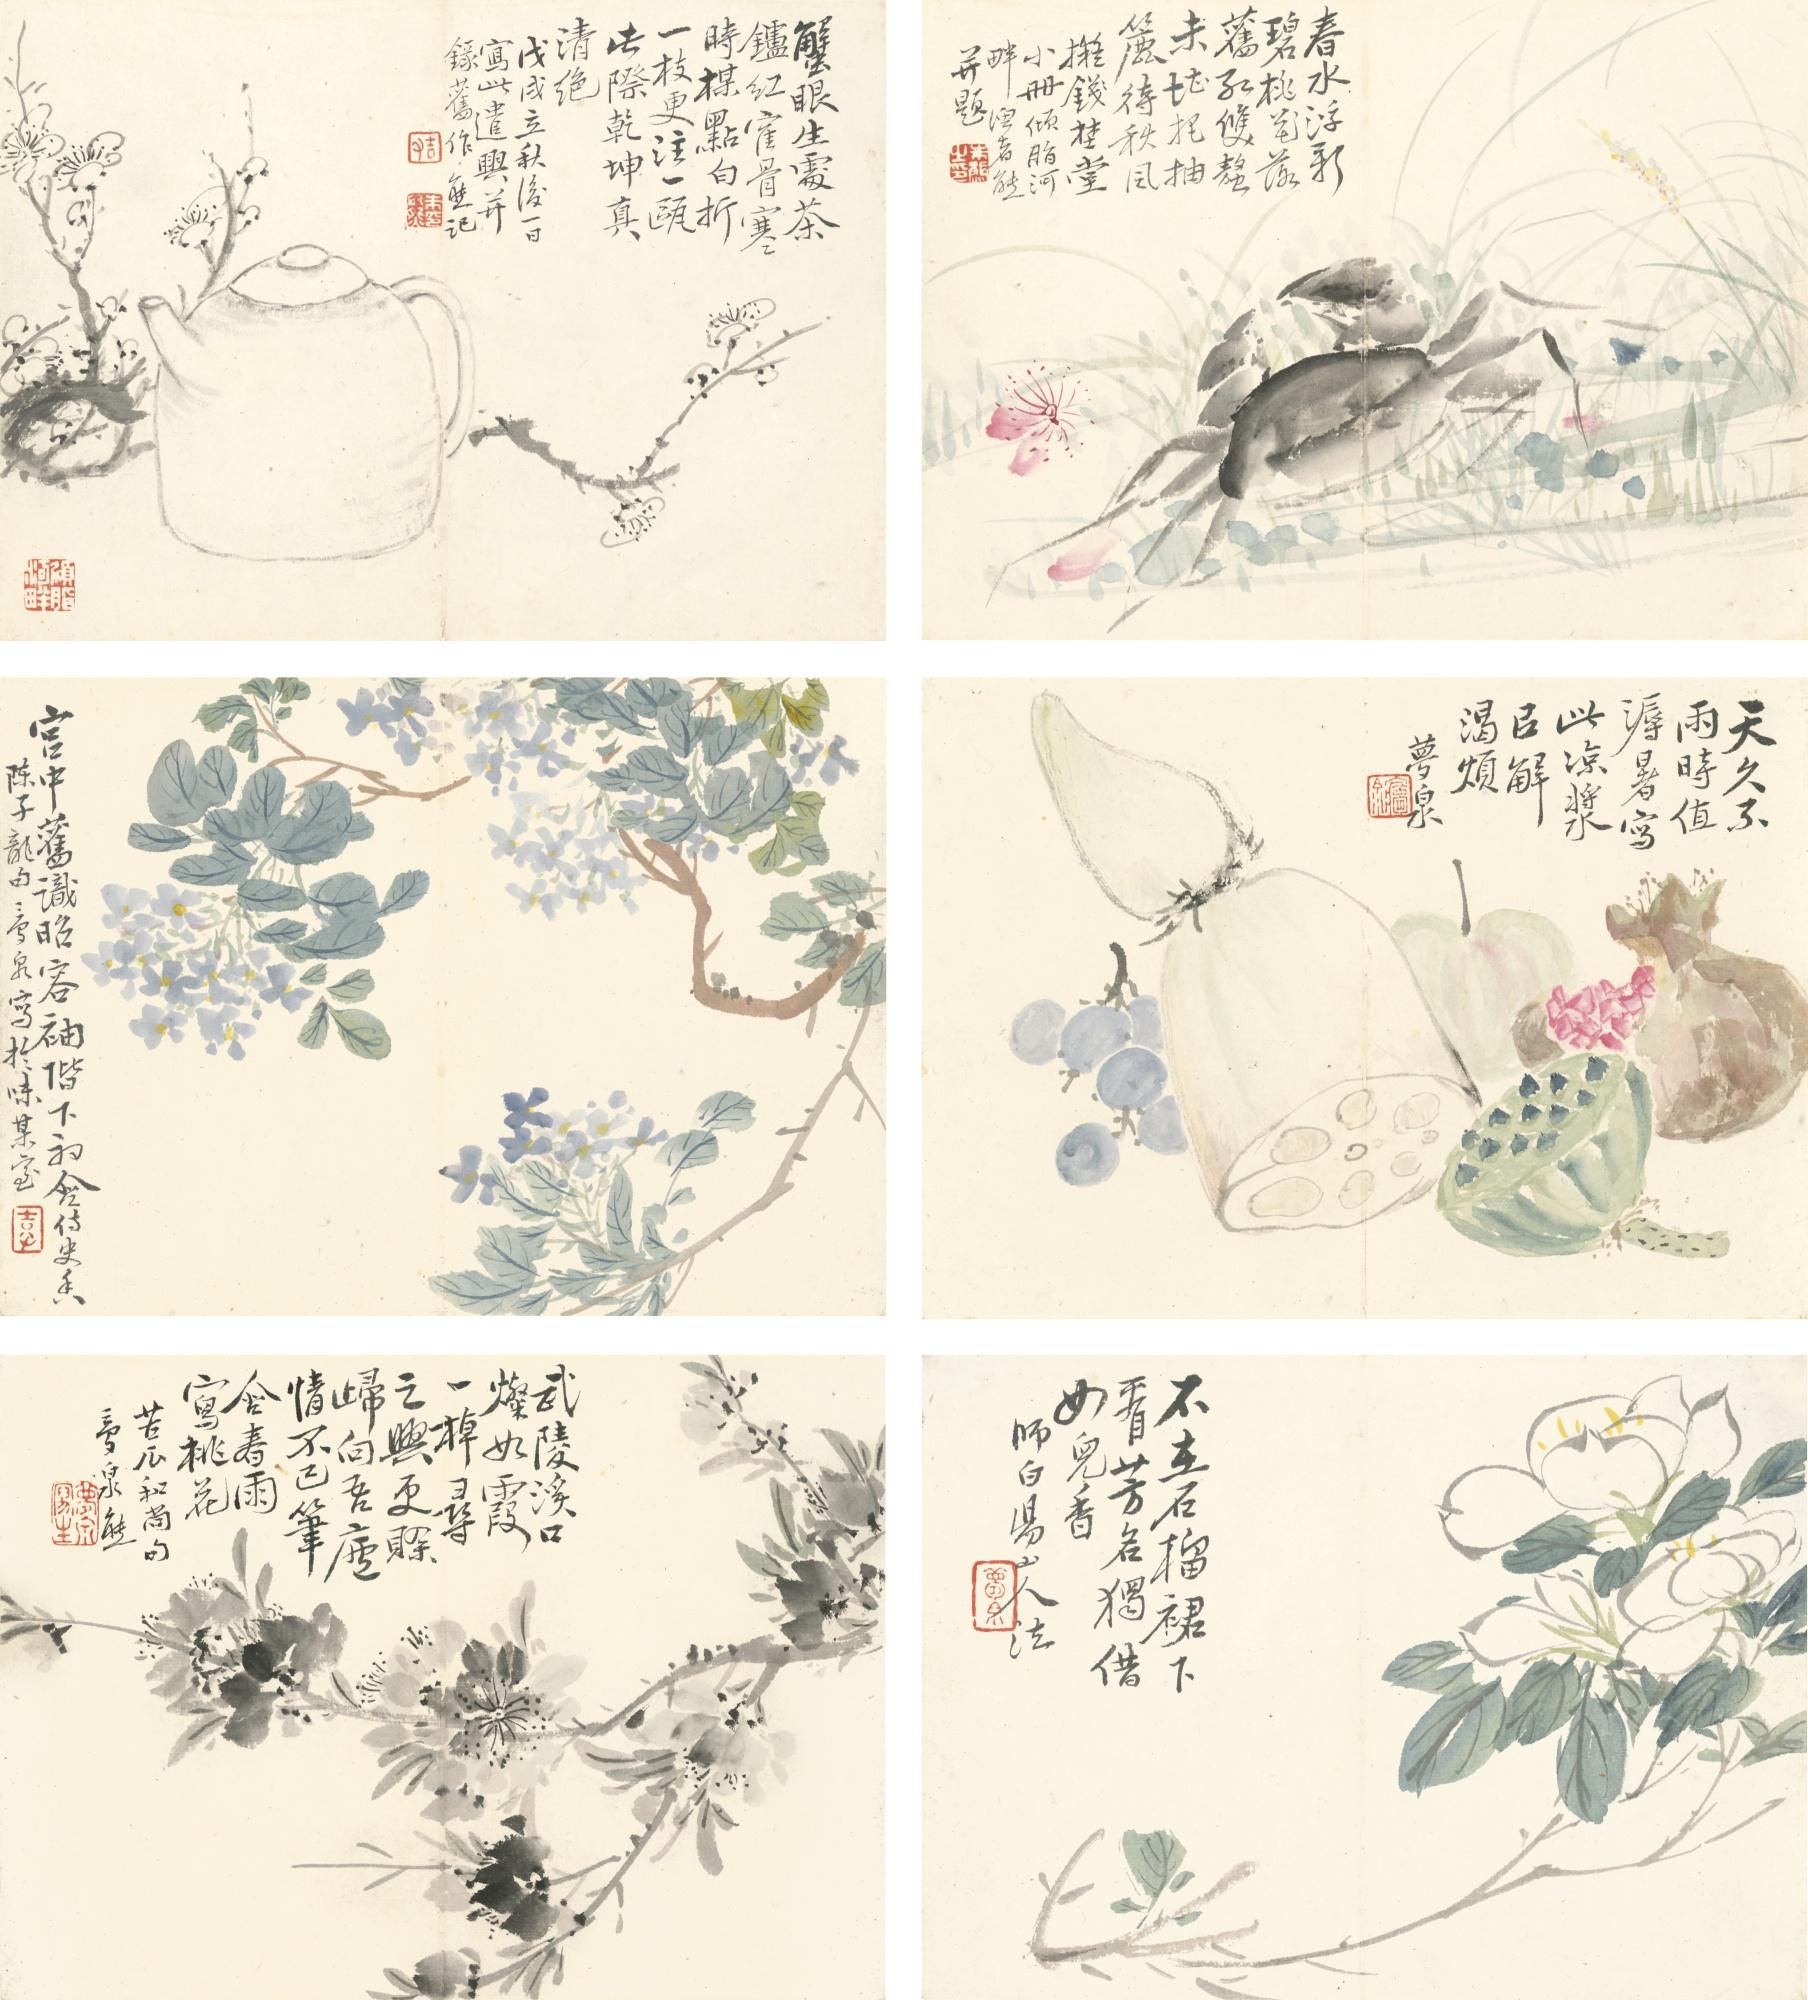 蟹眼生處茶
鑪紅寉骨寒
時楳點白折
一枝更注一甌
此際乾坤真
清绝
戊戌立秋後一日
寫此遣興并
錄舊作熊記
春水浮新
碧桃花落
舊紅雙螯
未堪把抽
簾待秋風
擬錢埜堂
小冊倾脂河
畔漚者熊
并題
宮中舊識昭容袖階下初含侍史香
陈子龍句夢泉寫於味某室
天久不
雨時值
溽暑寫
此凉漿
㠯解
渴煩
夢泉
武陵溪口
燦如霞
一棹尋
之興更賒
歸向吾廬
情不已筆
含春雨
寫桃花
苦瓜和尚句
夢泉熊
不在石榴裙下
看芳名獨借
女兒香
師白陽山人法